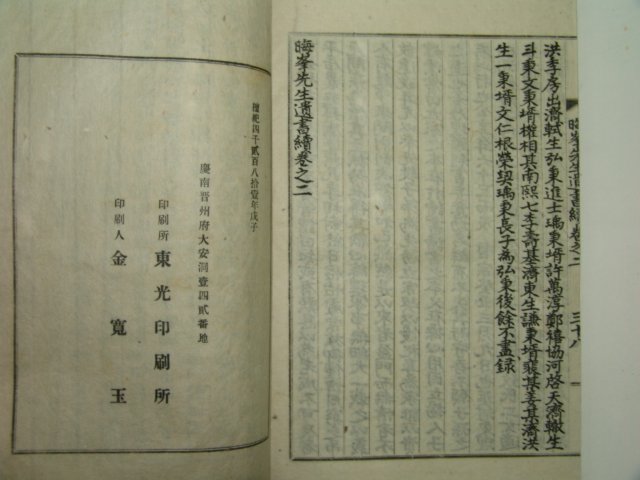 晦峯先生遺書續卷之二 三十八
洪李房出濟軾生弘東進士瑀東壻許萬淳鄭禧協河啓天濟轍生
斗東文東壻權相其南熙七李壽基濟東生謙東壻裵某姜某濟洪
生一東壻文仁根榮契瑀東長子為弘東後餘不盡録
晦峯先生遺書續卷之二
檀紀四千貳百八拾壹年戊子
慶南晋州府大安洞壹四貳番地
印刷所 東光印刷所
印刷人 金寬玉